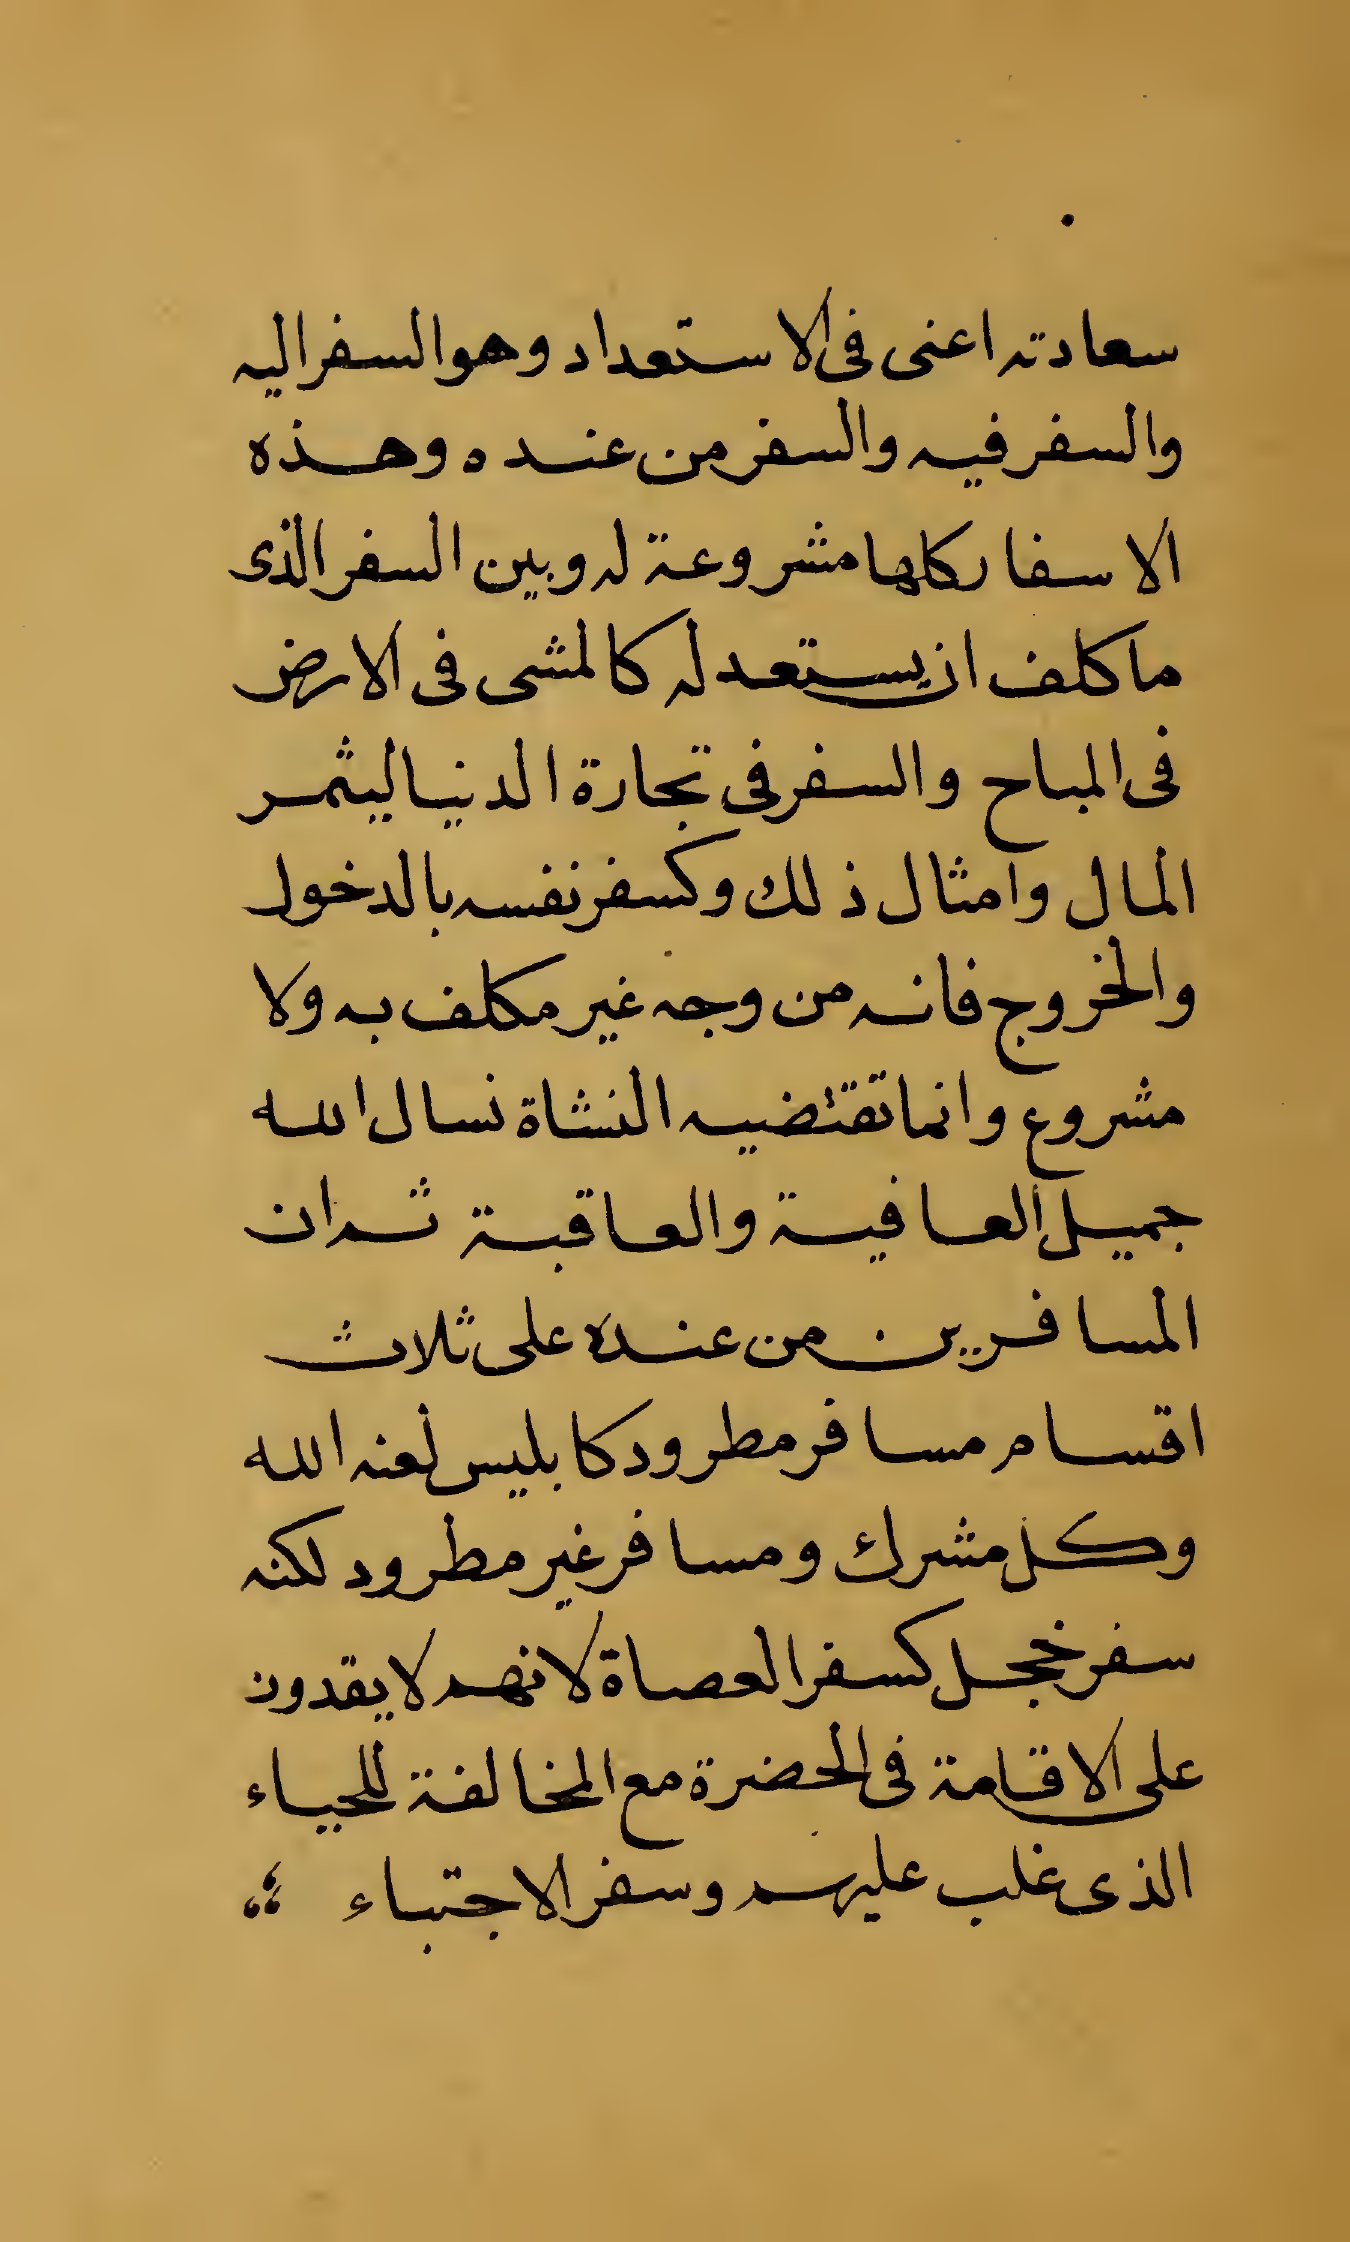 سعادته اعنى فى الاستعداد وهو السفر اليه
والسفر فيه والسفر من عنده وهذه
الاسفار كلها مشروعة له وبين السفر الذى
ما كلف ان يستعد له كالمشى فى الارض
فى المباح والسفر فى تجارة الدنيا ليثمر
المال وامثال ذلك وكسفر نفسه بالدخول
والخروج فانه من وجه غير مكلف به ولا
مشروع وانما تقتضيه النشاة نسال الله
جميل العافية والعاقبة ثم ان
المسافرين من عنده على ثلاث
اقسام مسافر مطرود كابليس لعنه الله
وكل مشرك ومسافر غير مطرود لكنه
سفر خجل كسفر العصاة لانهم لا يقدون
على الاقامة فى الحضرة مع المخالفة للحياء
الذى غلب عليهم وسفر الاجتباء